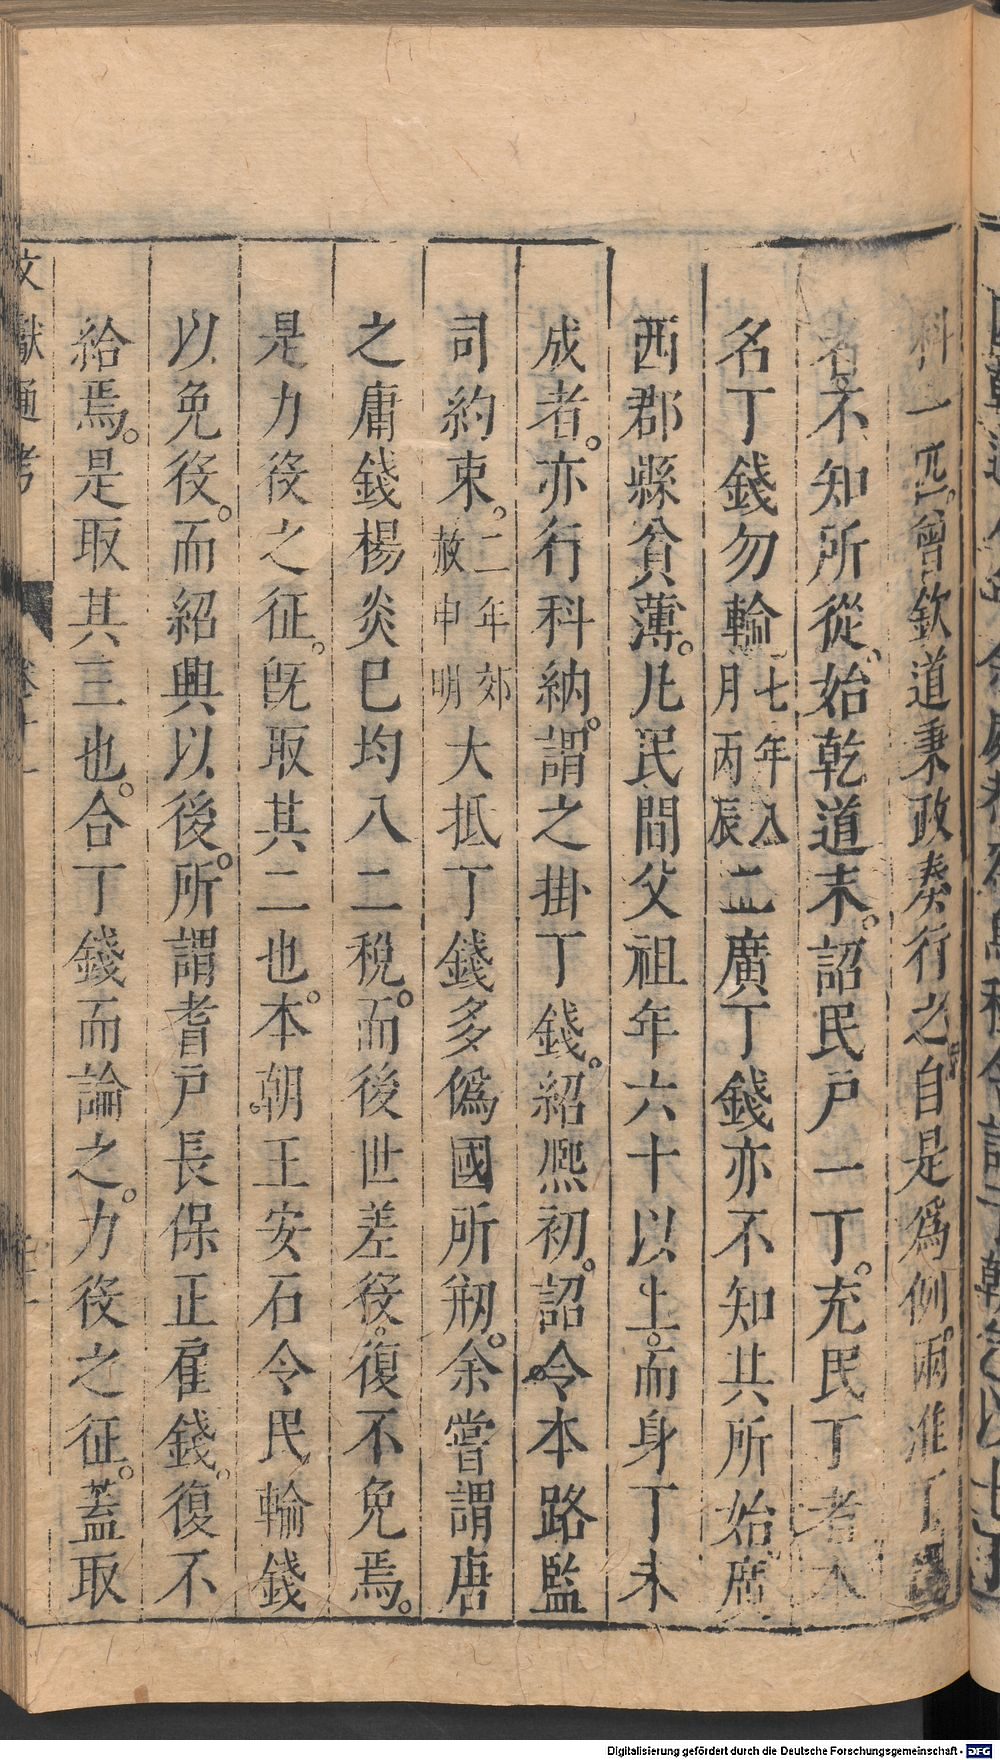 科一匹。曾欽道秉政奏行之自是爲例。兩淮丁
名不知所從。始乾道末。詔民戶一丁。充民丁者本
名丁錢勿輸七年八月丙辰二廣丁錢亦不知其所始。廣
西郡縣貧薄。凡民間父祖年六十以上。而身丁未
成者。亦行科納。謂之掛丁錢。紹熙初。詔令本路監
司約束。二年郊赦申明大抵丁錢多僞國所刱。余嘗謂唐
之庸錢楊炎巳均入二稅。而後世差役。復不免焉。
是力役之征。旣取其二也。本朝王安石令民輸錢
以免役。而紹興以後。所謂耆戶長保正雇錢。復不
給焉。是取其三也。合丁錢而論之。力役之征。蓋取
文獻通考
卷十一
Digitalisierung gefördert durch die Deutsche Forschungsgemeinschaft - DFG